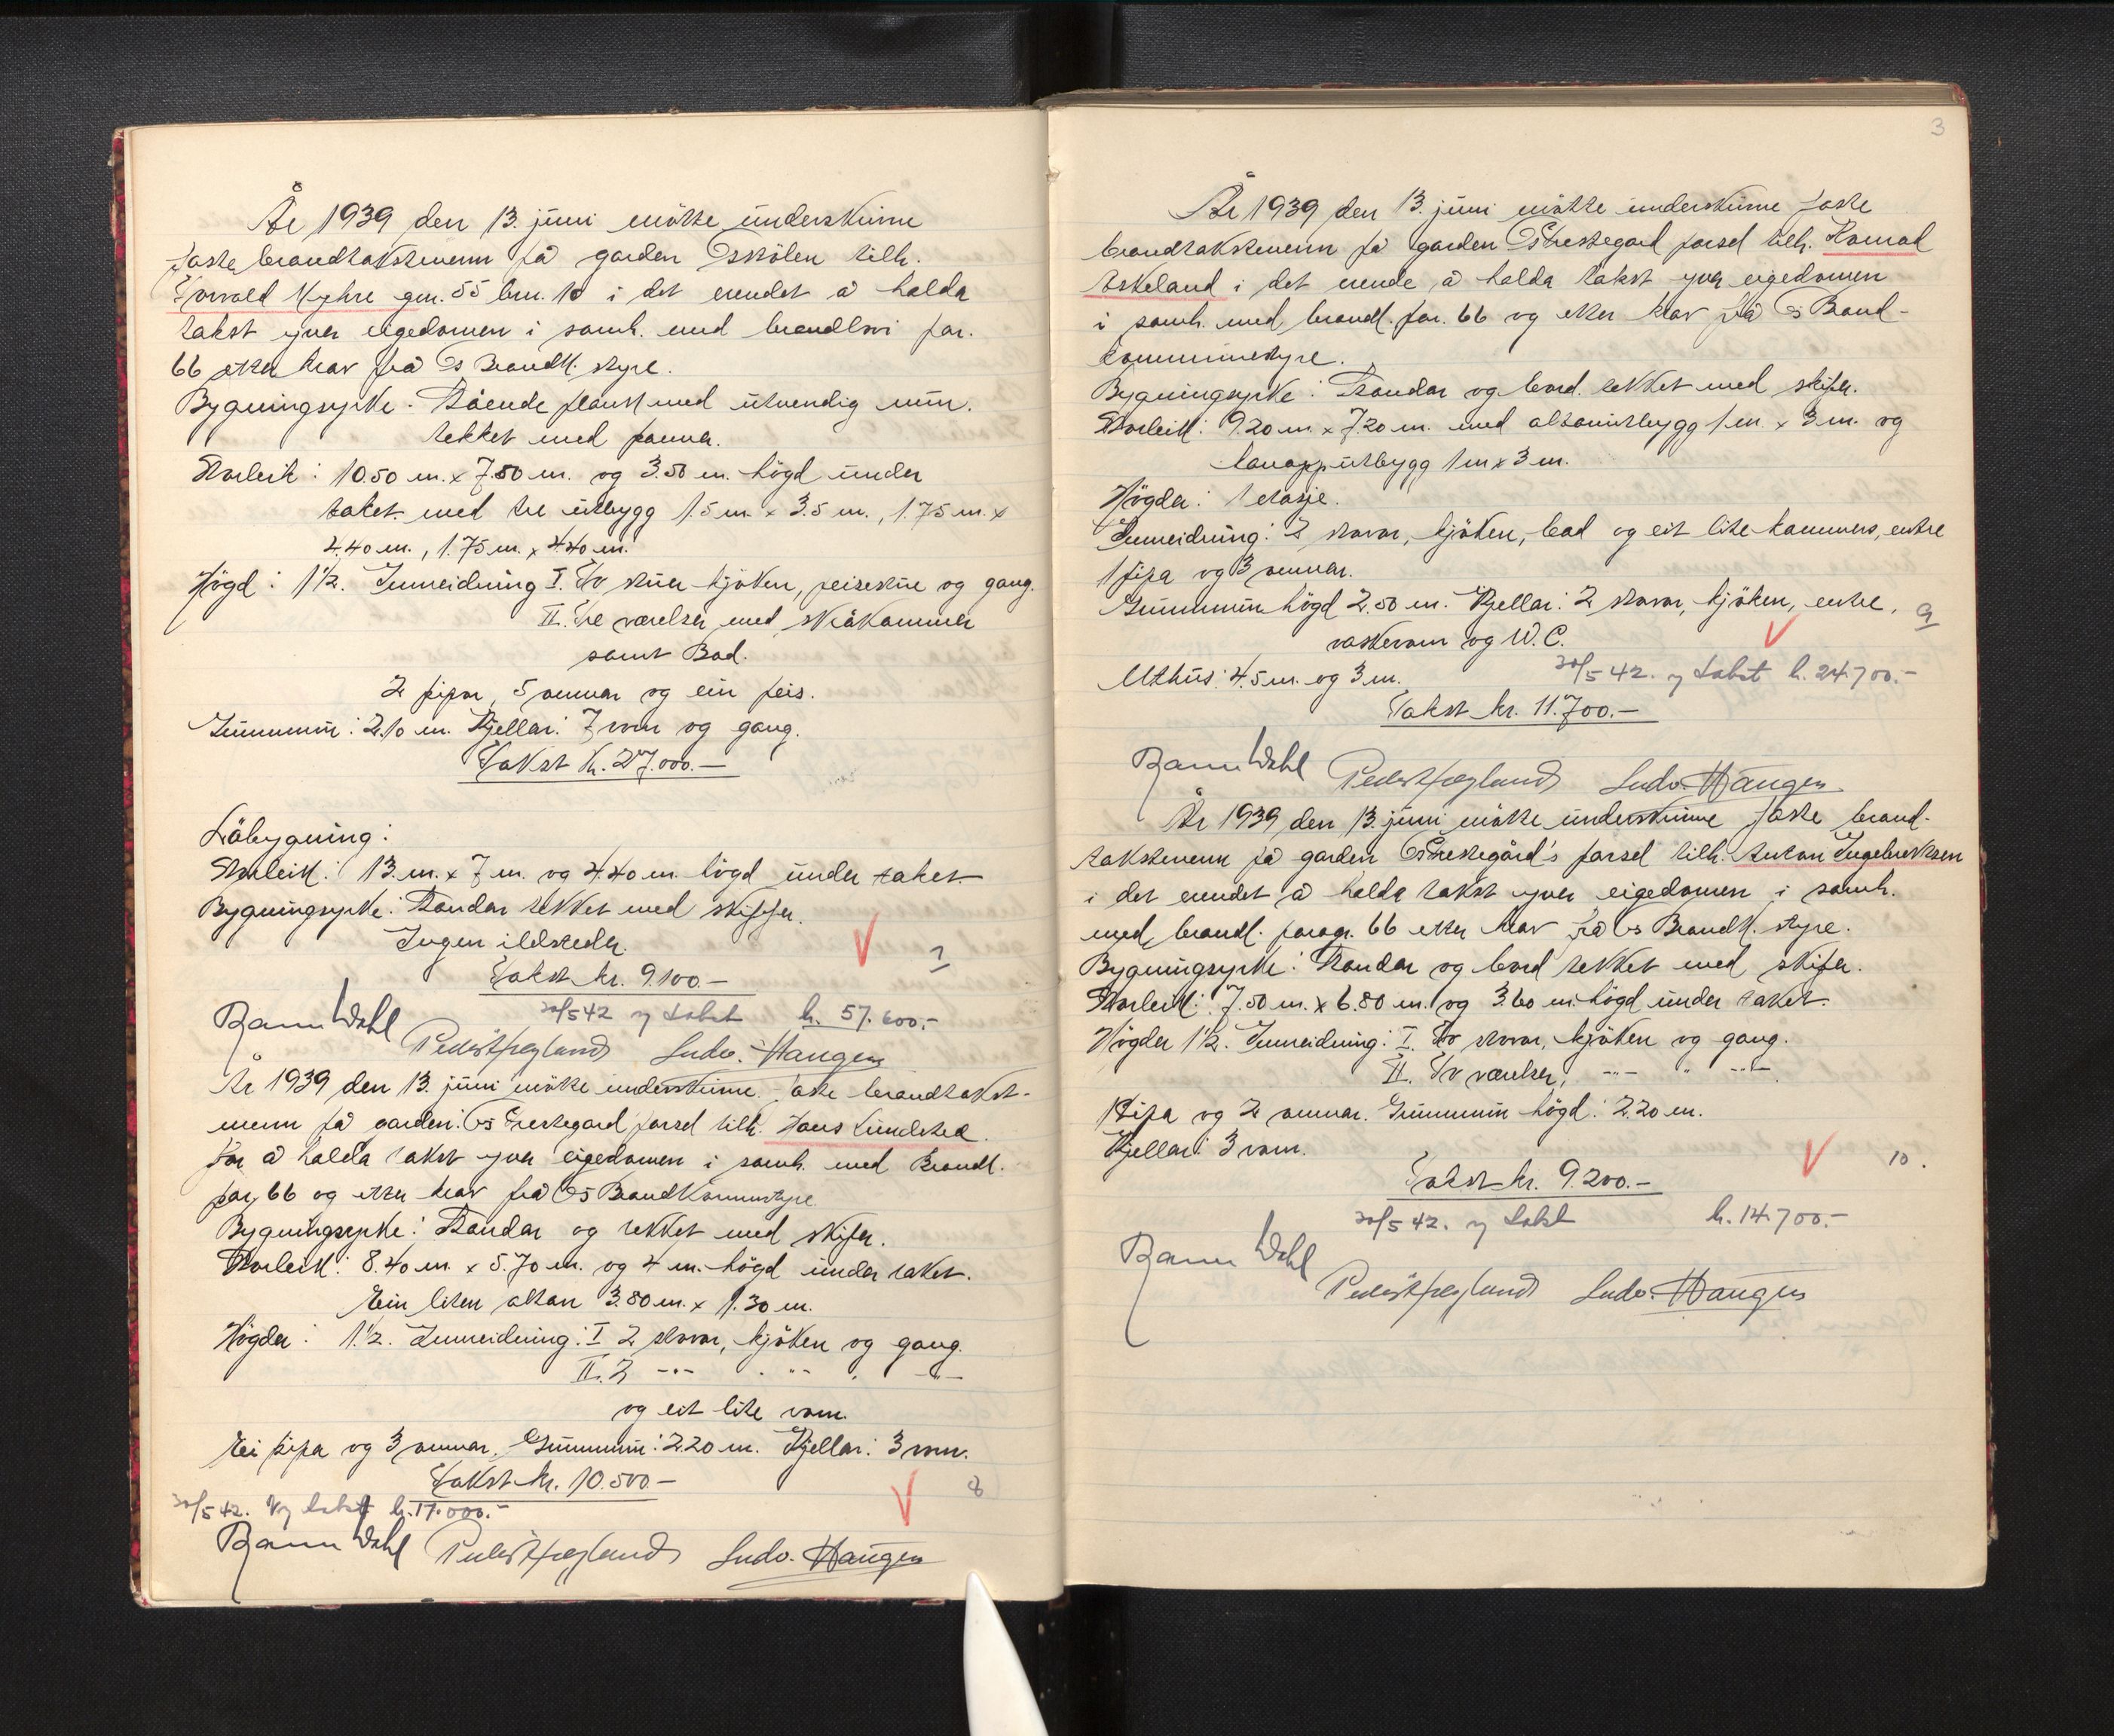 År 1939 den 13. juni møtte underskrivne
faste brandtakstmenn på garden Osskölen tilh.
Torvald Myhre gnr. 55 bnr. 10 i det erendet å halda
takst yver eigedomen i samh. med brandlovi par.
66 etter krav frå Os Brandk. styre.
Bygningsyrke. Stående plank med utvendig mur.
tekket med panner.
Storleik: 10.50 m. x 7.50 m. og 3.50 m. högd under
taket. med tre utbygg 1.5 m. x 3.5 m., 1.75 m. x
4.40 m., 1.75 m. x 4.40 m.
Högd: 1 1/2. Innreidning I. To stuer kjöken, peisestue og gang.
II. Tre værelser med skråkammer
samt Bad.
2 pipor, 5 omnar og ein peis.
Grunnmur: 2.10 m. Kjellar: 7 rom og gang.
Takst kr. 27.000.-
Löbygning:
Storleik: 13. m. x 7 m. og 4.40 m. högd under taket.
Bygningsyrke: Standar tekket med skiffer.
Ingen ildsteder.
7
Takst kr. 9.100.-
30/5 42 ny takst kr. 57.600.-
Wahl Ludv. Haugen
År 1939 den 13. juni møtte underskrivne faste brandtakst-
menn på garden: Os Prestegard parsel tilh. Hans Lundetræ.
for å halda takst yver eigedomen i samh. med Brandl.
par. 66 og etter krav frå Os Brandkommstyre
Bygningsyrke: Standar og tekket med skifer.
Storleik: 8.40 m. x 5.70 m. og 4 m. högd under taket.
Ein liten altan 3.80 m. x 1.30 m.
Högder: 1 1/2. Innreidning: I 2 stovor, kjöken og gang.
II. 2 -"- -"- -"-
og eit lite rom.
Ei pipa og 3 omnar. Grunnmur: 2.20 m. Kjellar: 3 rom.
Takst kr. 10.500.-
8
30/5 42. Ny takst kr. 17.000.-
Wahl Ludv. Haugen
3
År 1939 den 13. juni møtte underskrivne faste
brandtakstmenn på garden Os Prestegard parsel tilh. Konrad
Askeland i det erende å halda takst yver eigedomen
i samh. med brandl. par. 66 og etter krav frå Os Brand-
kommunestyre.
Bygningsyrke: Standar og bord tekket med skifer.
Storleik: 9.20 m. x 7.20 m. med altanutbygg 1 m. x 3 m. og
karnapputbygg 1 m x 3 m.
Högder: 1 etasje.
Innreidning: 3 stovor, kjöken, bad og eit lite kammers, entre
1 pipa og 3 omnar.
Grunnmur högd 2.50 m. Kjellar: 2 stovor, kjöken, entre,
9
vaskerom og W.C.
Uthus: 4.5 m. og 3 m.
30/5 42. ny takst kr. 24.700.-
Takst kr. 11.700.-
Wahl Ludv. Haugen
År 1939 den 13. juni møtte underskrivne faste brand-
takstmenn på garden Os Prestegård's parsel tilh. Anton Ingebrektsen
i det erendet å halda takst yver eigedomen i samh.
med brandl. paragr. 66 etter krav frå Os Brandk. styre.
Bygningsyrke: Standar og bord tekket med skifer.
Storleik: 7.50 m. x 6.80 m. og 3.60 m. högd under taket.
Högder 1 1/2. Innreidning: I. To stovor, kjöken og gang.
II. To værelser, -"- " -"-
1 Pipa og 2 omnar. Grunnmur högd: 2.20 m.
Kjellar: 3 rom.
10.
Takst kr. 9.200.-
30/5 42. ny takst kr. 14.700.-
Wahl Ludv. Haugen